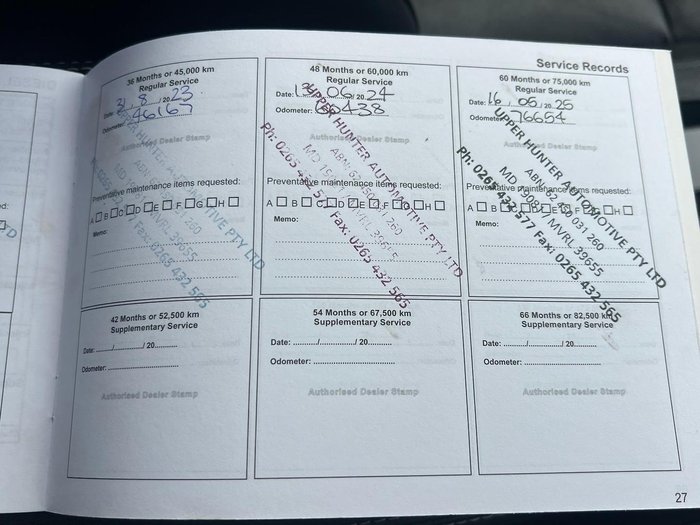 Service Records
36 Months or 45,000 km
Regular Service
Date: 31 / 8 / 20 23
Odometer: 46167
Authorised Dealer Stamp
Preventative maintenance items requested:
A B C D E F G H
Memo:
UPPER HUNTER AUTOMOTIVE PTY LTD
MVRL 39655
Fax: 0265 432 565
48 Months or 60,000 km
Regular Service
Date: 06 / 20 24
Odometer: 60438
Authorised Dealer Stamp
Preventative maintenance items requested:
A B D E F G H
Memo:
UPPER HUNTER AUTOMOTIVE PTY LTD
ABN 62 031 260
MVRL 39655
Ph: 0265 432 577 Fax: 0265 432 565
60 Months or 75,000 km
Regular Service
Date: 16 / 05 / 20 25
Odometer: 76654
Authorised Dealer Stamp
Preventative maintenance items requested:
A B
Memo:
UPPER HUNTER AUTOMOTIVE PTY LTD
ABN 62 031 260
MVRL 39655
Ph: 0265 432 577 Fax: 0265 432 565
42 Months or 52,500 km
Supplementary Service
Date: / / 20
Odometer:
Authorised Dealer Stamp
54 Months or 67,500 km
Supplementary Service
Date: / / 20
Odometer:
Authorised Dealer Stamp
66 Months or 82,500 km
Supplementary Service
Date: / / 20
Odometer:
Authorised Dealer Stamp
27